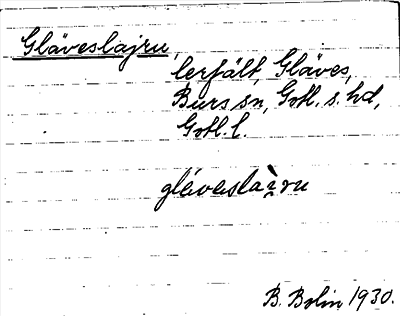 Gläveslajru,
lerfält, Gläves,
Burs sn, Gotl. s. hd,
Gotl. l.
gléveslaìru
B. Bolin 1930.